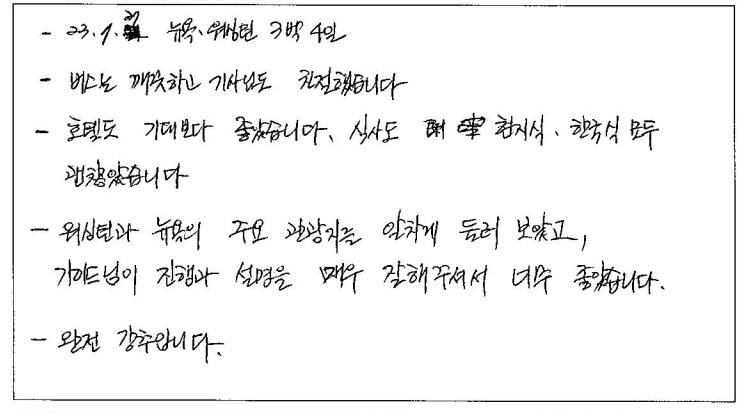 - 23.9. 뉴욕.워싱턴 3박 4일
- 버스는 깨끗하고 기사님도 친절했습니다
- 호텔도 기대보다 좋았습니다. 식사도 현지식. 한국식 모두
괜찮았습니다
- 워싱턴과 뉴욕의 주요 관광지를 알차게 둘러 보았고,
가이드님이 진행과 설명을 매우 잘해주셔서 너무 좋았습니다.
- 완전 강추입니다.